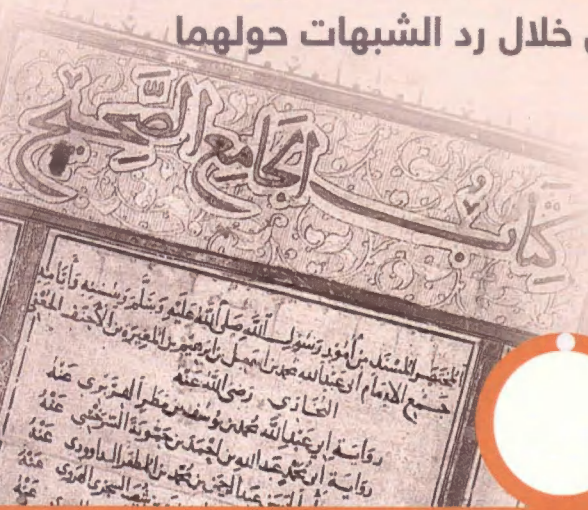 خلال رد الشبهات حولهما
كِتَابُ الجَامِعِ الصَّحِيحِ
المختصر المسند من أمور رسول الله صلى الله عليه وسلم وسننه وأيامه
جمع الإمام أبي عبدالله محمد بن إسمعيل بن إبراهيم بن المغيرة بن الأحنف
البخاري رضي الله عنه
رواية أبي عبد الله محمد بن يوسف بن مطر الفربري عنه
رواية أبي محمد عبدالله بن أحمد بن حموية السرخسي عنه
عبد الرحمن بن محمد بن المظفر الداوودي عنه